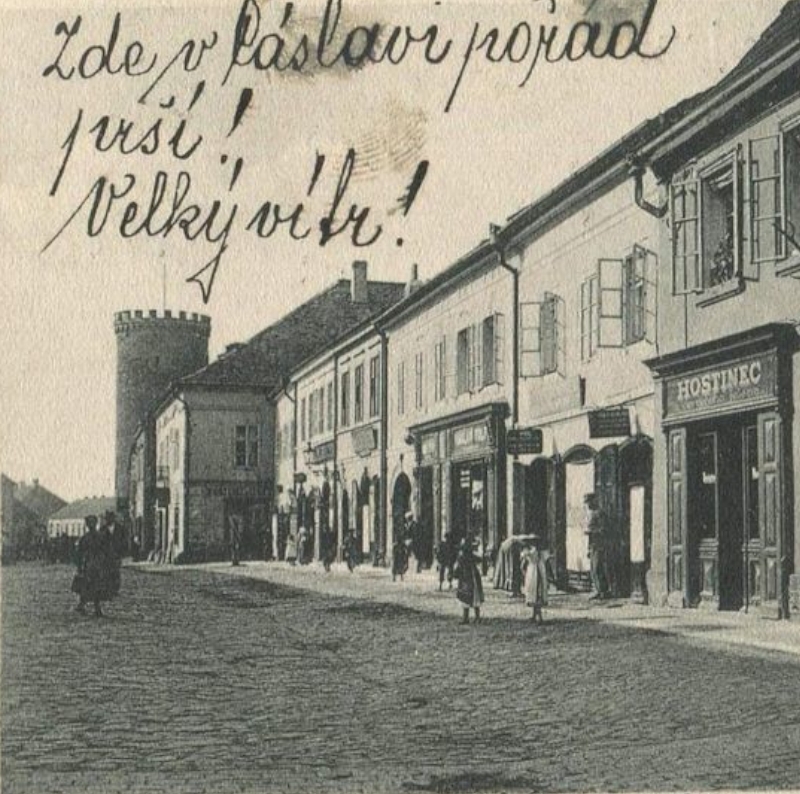 Zde v Čáslavi pořád
prší!
Velký vítr!
HOSTINEC